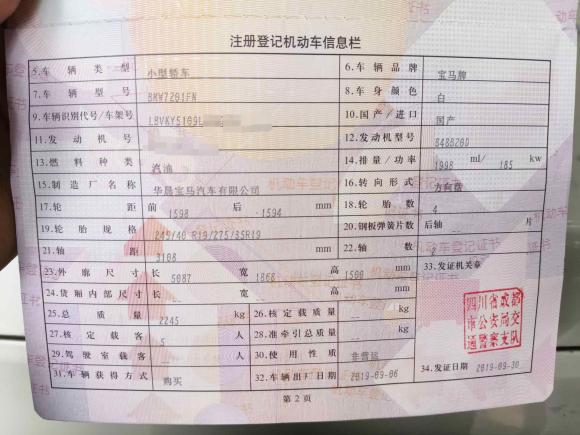 注册登记机动车信息栏
5.车辆类型 小型轿车 6.车辆品牌 宝马牌
7.车辆型号 BMW7201FN 8.车身颜色 白
9.车辆识别代号/车架号 LBVKY5109 10.国产/进口 国产
11.发动机号 12.发动机型号 B48B20D
13.燃料种类 汽油 14.排量/功率 1998 ml/ 185 kw
15.制造厂名称 华晨宝马汽车有限公司 16.转向形式 方向盘
17.轮距 前 1598 后 1594 mm 18.轮胎数 4
19.轮胎规格 245/40 R19/275/35R19 20.钢板弹簧片数 后轴 -- 片
21.轴距 3108 mm 22.轴数
23.外廓尺寸 长 5087 宽 1868 高 1500 mm 33.发证机关章
24.货厢内部尺寸 长 -- 宽 -- 高 -- mm
25.总质量 2245 kg 26.核定载质量 -- kg
27.核定载客 5 人 28.准牵引总质量 -- kg
四川省成都
市公安局交
通警察支队
29.驾驶室载客 -- 人 30.使用性质 非营运
31.车辆获得方式 购买 32.车辆出厂日期 2019-09-06 34.发证日期 2019-09-30
第2页